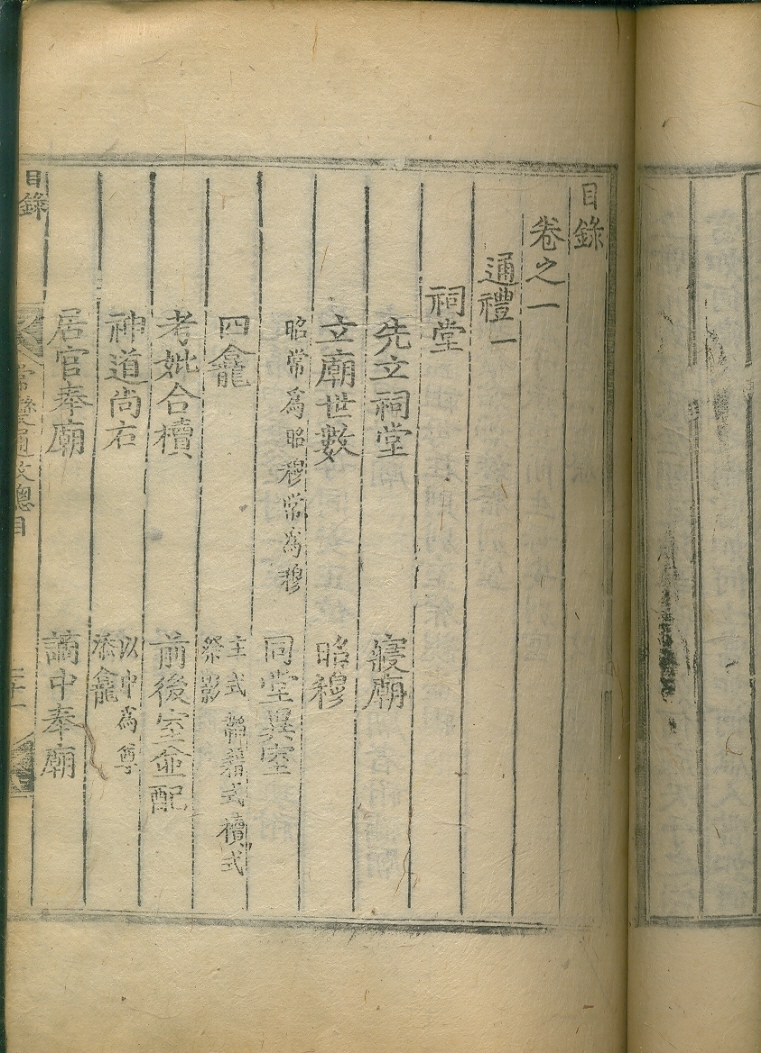 目錄
卷之一
通禮一
祠堂
先立祠堂 寢廟
立廟世數 昭穆
昭常爲昭 穆常爲穆 同堂異室
四龕 主式 韜藉式 櫝式
祭影
考妣合櫝 前後室並配
神道尚右 以中爲尊
添龕
居官奉廟 謫中奉廟
目錄
常變通攷總目